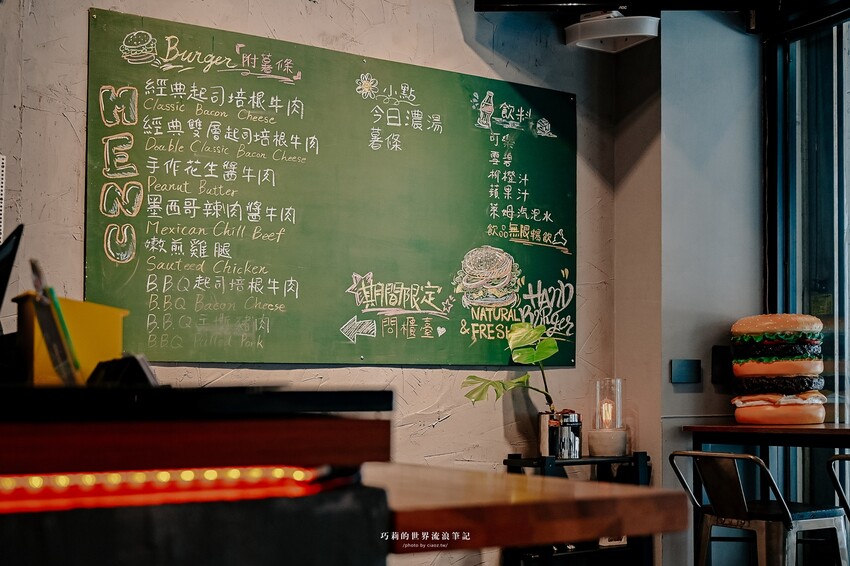 MENU
Burger 附薯條
經典起司培根牛肉
Classic Bacon Cheese
經典雙層起司培根牛肉
Double Classic Bacon Cheese
手作花生醬牛肉
Peanut Butter
墨西哥辣肉醬牛肉
Mexican Chill Beef
嫩煎雞腿
Sauteed Chicken
B.B.Q起司培根牛肉
B.B.Q Bacon Cheese
B.B.Q手撕豬肉
BBQ Pulled Pork
小點
今日濃湯
薯條
飲料
可樂
雪碧
柳橙汁
蘋果汁
萊姆汽泡水
飲品無限暢飲
期間限定
問櫃臺
NATURAL
& FRESH
HAND
Burger
巧莉的世界流浪筆記
/photo by ciaoz.tw/